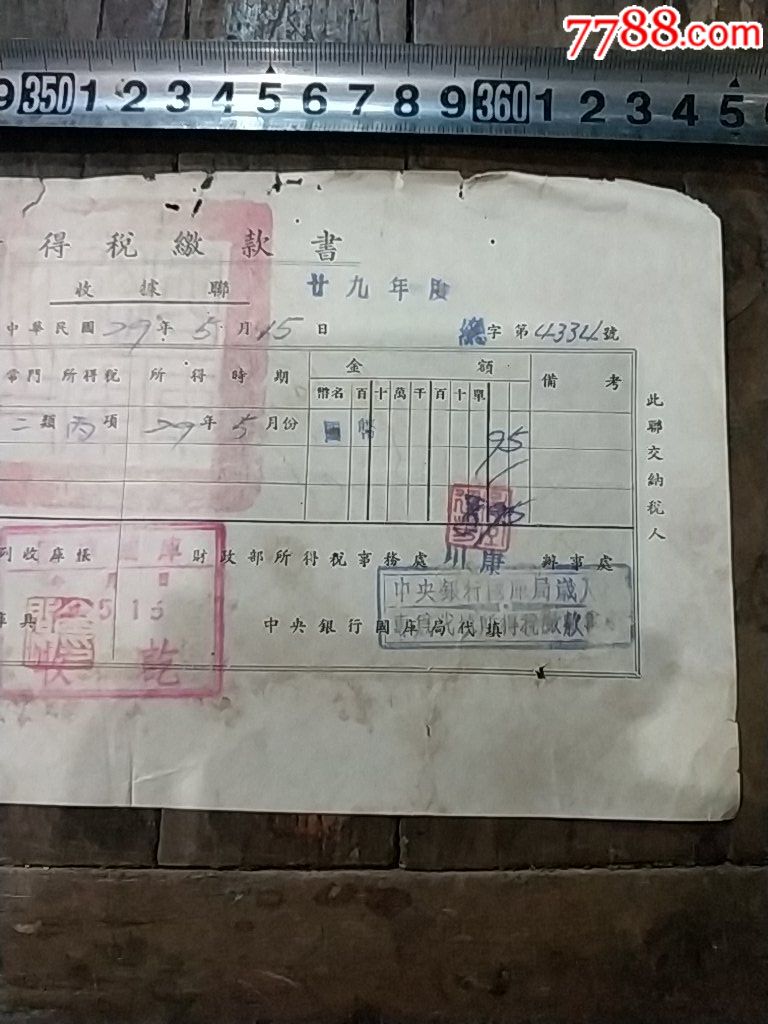 7788.com
9 350 1 2 3 4 5 6 7 8 9 360 1 2 3 4 5
得稅繳款書
收據聯
廿九年度
中華民國29年5月15日
總字第4334號
常門所得稅
所得時期
金額
備考
幣名 百 十 萬 千 百 十 單
二類丙項
29年5月份
國幣
95
95
此聯交納稅人
列收庫帳
財政部所得稅事務處川康辦事處
庫
月日
5 15
收乾
中央銀行國庫局代填
中央銀行國庫局